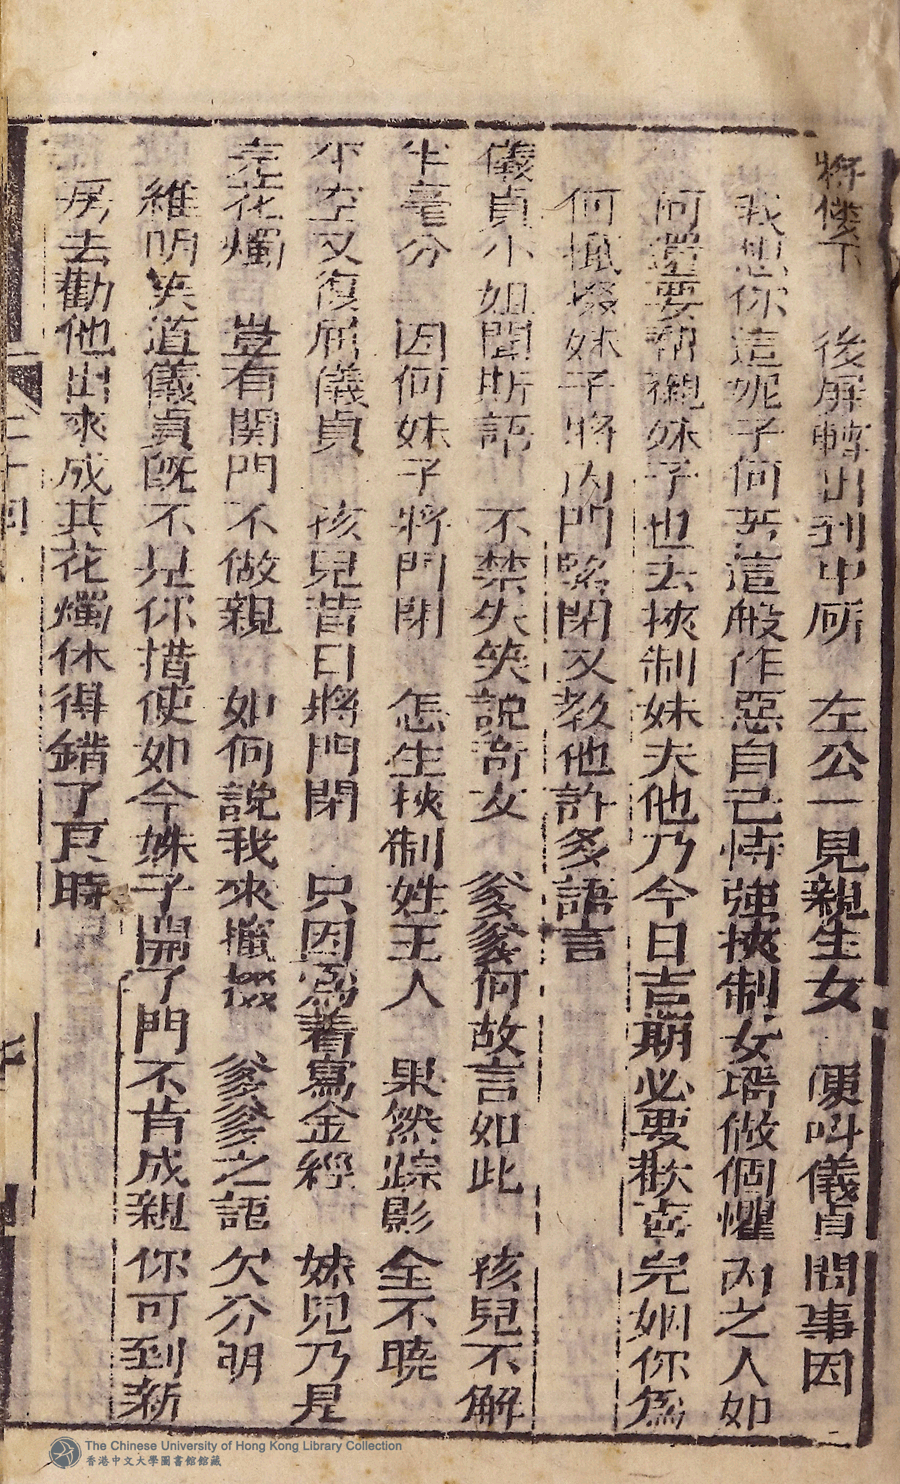 將僂下　後屏轉出到中所　左公一見親生女　便叫儀貞問事因
我想你這妮子何苦這般作惡自己恃強挾制女壻做個懼內之人如
何還要帮襯妹子也去挾制妹夫他乃今日吉期必要歡喜完姻你為
何攛掇妹子將內門緊閉又教他許多語言
儀貞小姐聞斯語　不禁失笑說奇文　爹爹何故言如此　孩兒不解
半毫分　因何妹子將門閉　怎生挾制姓王人　果然踪影全不曉
平空又復屈儀貞　孩兒昔日將門閉　只因為着寫金經　妹兒乃是
完花燭　豈有関門不做親　如何說我來攛掇　爹爹之語欠分明
維明笑道儀貞既不是你指使如今妹子開了門不肯成親你可到新
房去勸他出來成其花燭休得錯了良時
二十四
The Chinese University of Hong Kong Library Collection
香港中文大學圖書館館藏